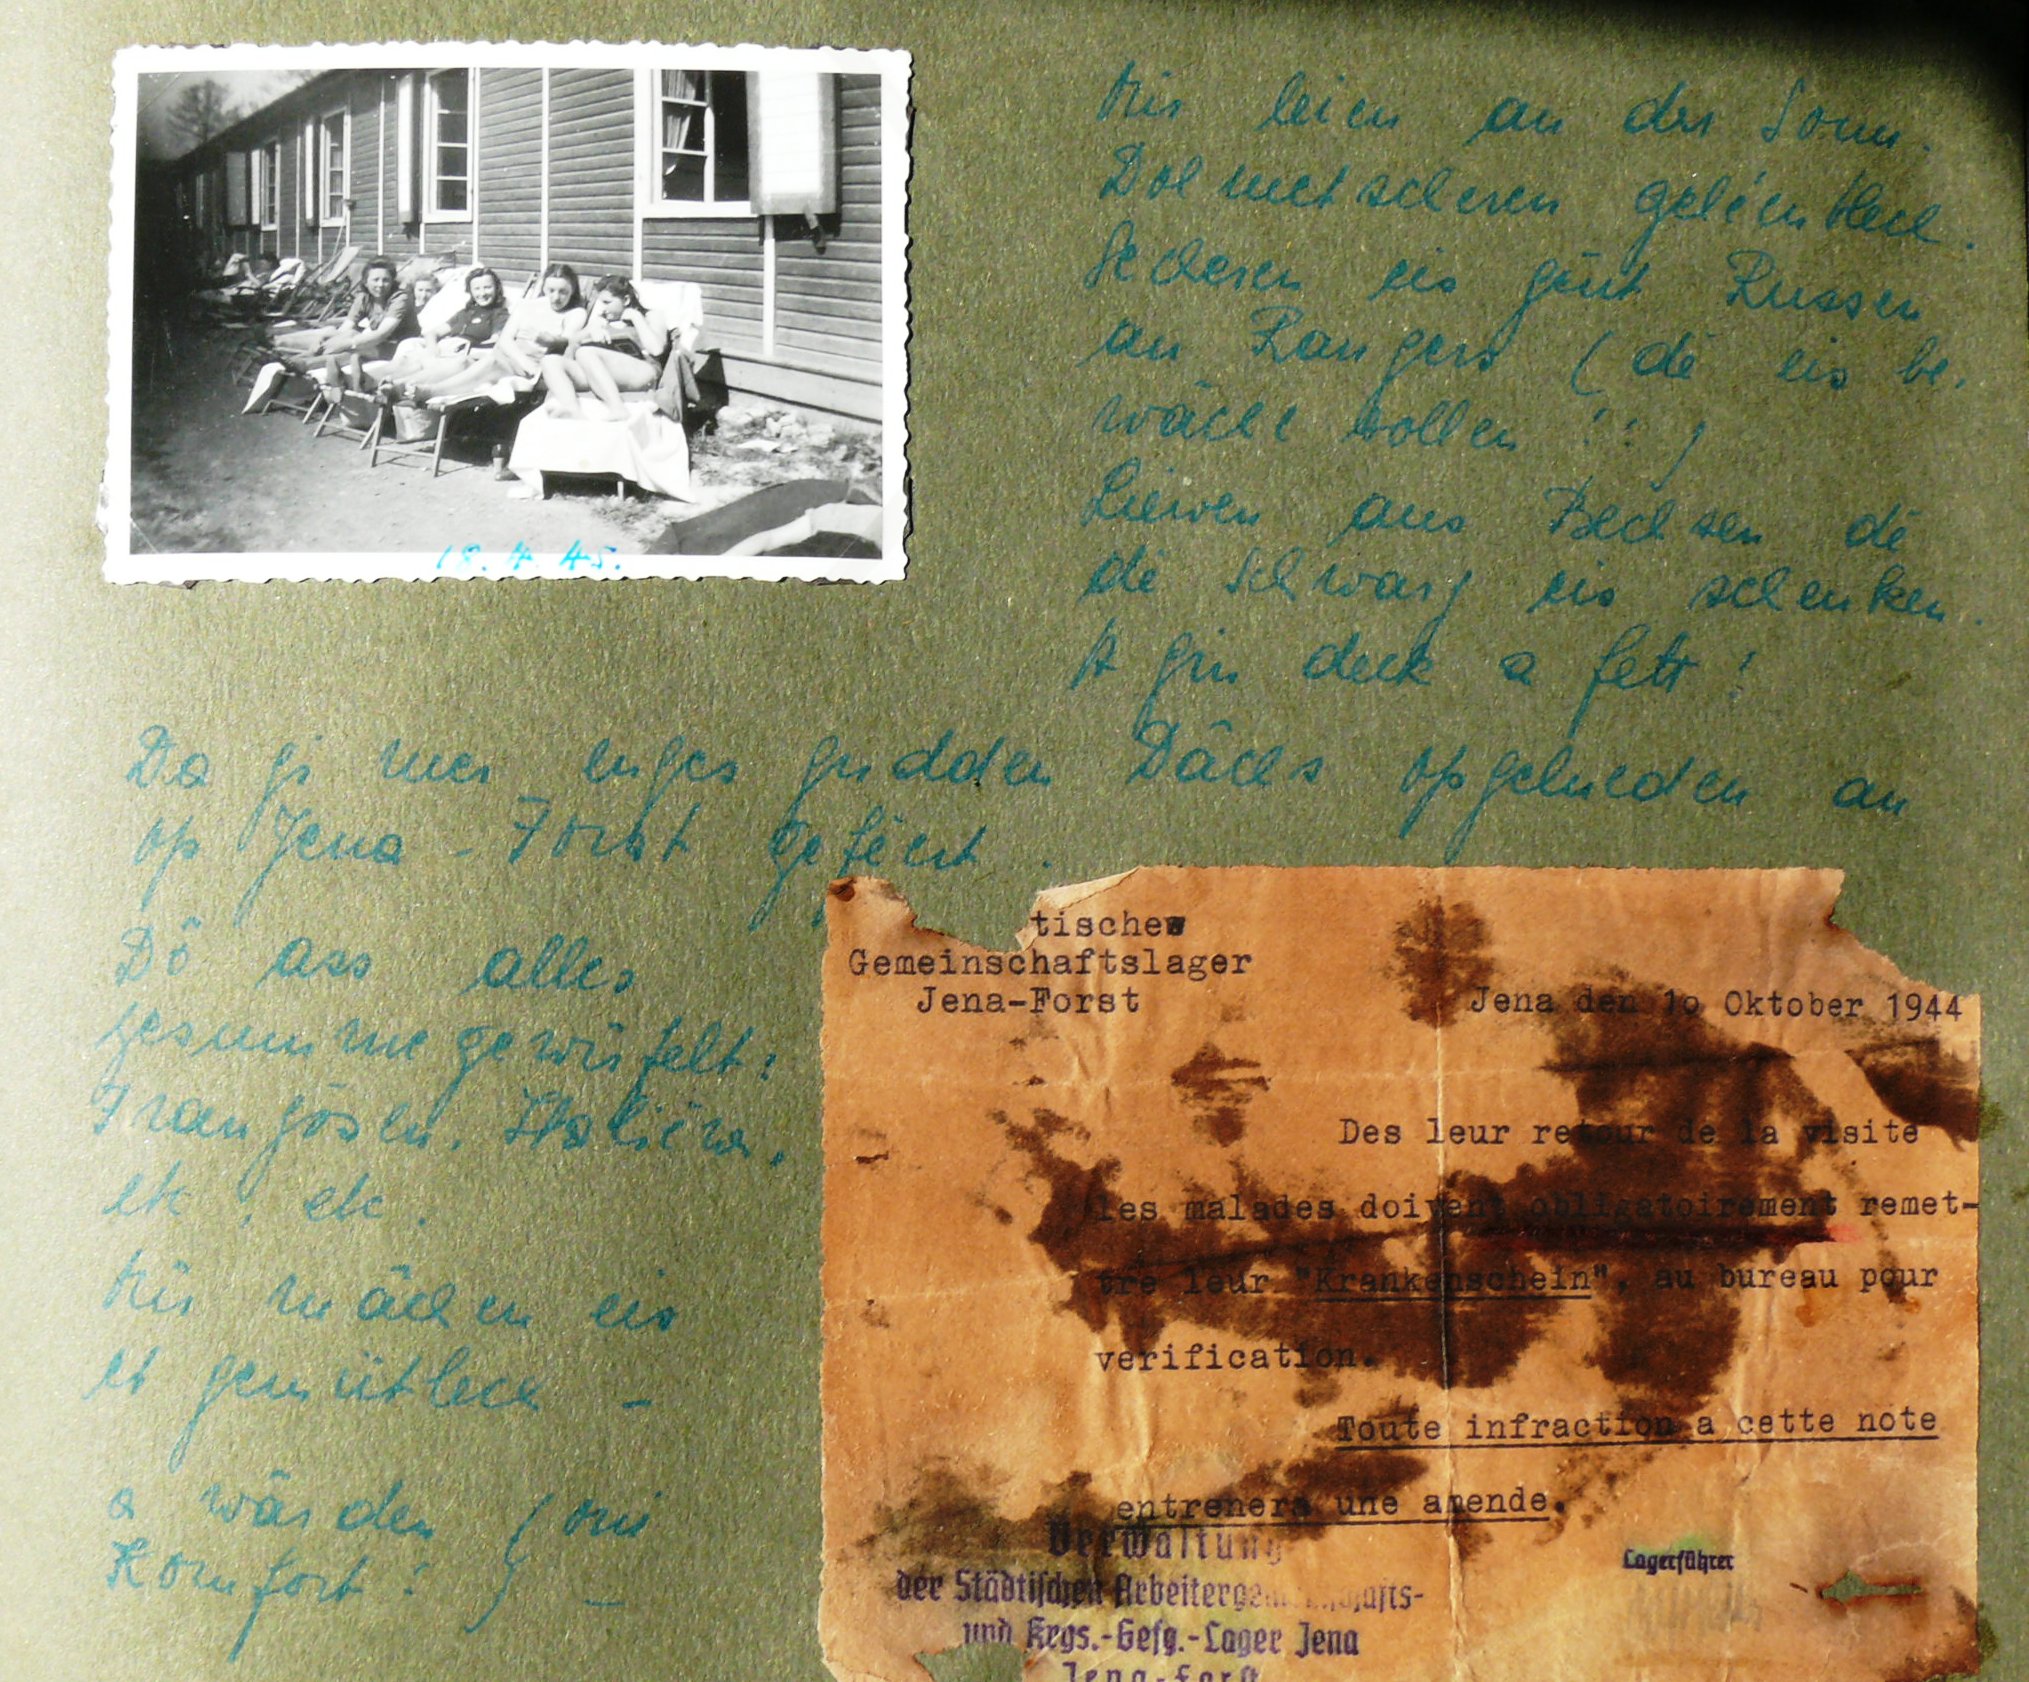 18. 4. 45.
Mir leien an der Sonn.
Dolmetscheren geléentlech.
Secheren eis géint Russen
an Rangers (dé eis be-
wäche sollen !!)
Liewen aus Bechsen dé
dé Schwarz eis schenken.
A gin deck a fett!
Da gi mer enges gudden Dächs opgelueden an
op Jena-Forst geféert.
Dô ass alles
zesummegewürfelt:
Franzôsen, Italiéner,
etc. etc.
Mir mächen eis
et gemütlech -
a wärden (mi
Komfort!) -
tisches
Gemeinschaftslager
Jena-Forst
Jena den 10 Oktober 1944
Des leur retour de la visite
les malades doivent obligatoirement remet-
tre leur "Krankenschein", au bureau pour
verification.
Toute infraction a cette note
entrenera une amende.
Verwaltung
der Städtischen Arbeitergemeinschafts-
und Krgs.-Gefg.-Lager Jena
Jena-Forst
Lagerführer